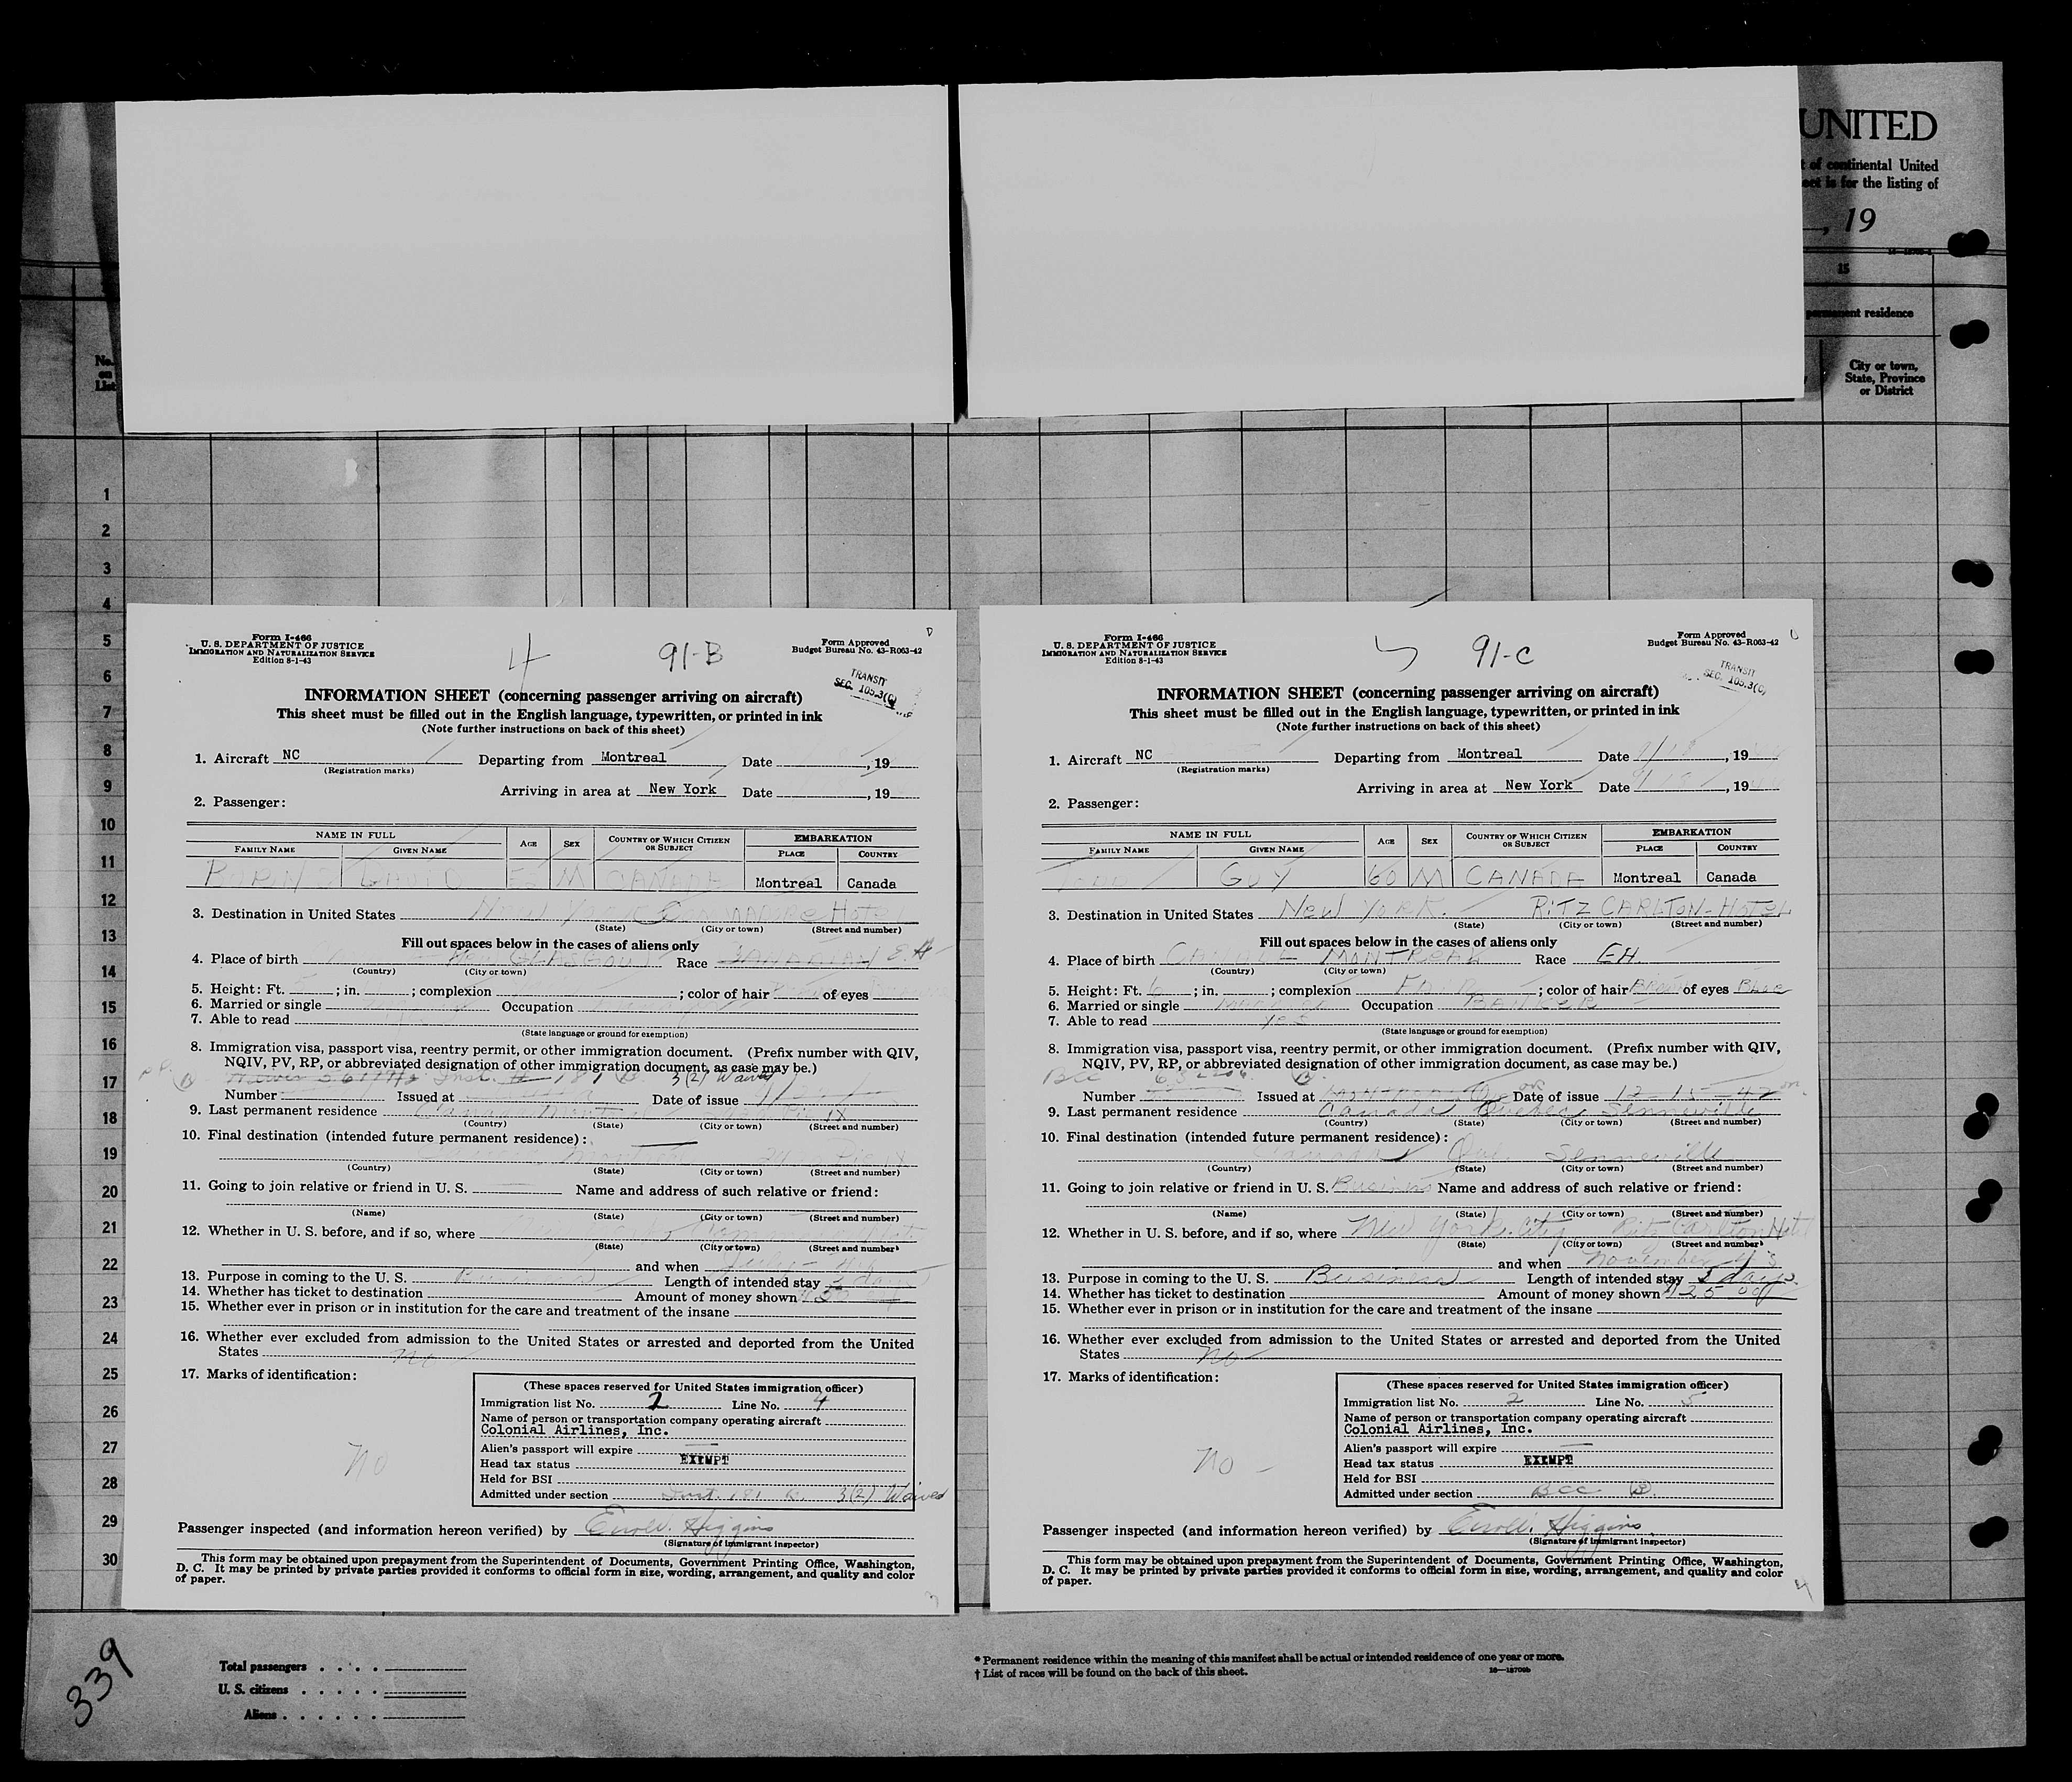 UNITED
of continental United
is for the listing of
, 19
15
permanent residence
No.
on
List
City or town,
State, Province
or District
1
2
3
4
5
6
7
8
9
10
11
12
13
14
15
16
17
18
19
20
21
22
23
24
25
26
27
28
29
30
Form I-466
U. S. DEPARTMENT OF JUSTICE
IMMIGRATION AND NATURALIZATION SERVICE
Edition 8-1-43
4
91-B
Form Approved
Budget Bureau No. 43-R063-42
TRANSIT
SEC. 105.3(C)
INFORMATION SHEET (concerning passenger arriving on aircraft)
This sheet must be filled out in the English language, typewritten, or printed in ink
(Note further instructions on back of this sheet)
1. Aircraft NC Departing from Montreal Date , 19
(Registration marks)
Arriving in area at New York Date , 19
2. Passenger:
NAME IN FULL AGE SEX COUNTRY OF WHICH CITIZEN OR SUBJECT EMBARKATION
FAMILY NAME GIVEN NAME PLACE COUNTRY
M CANADA Montreal Canada
3. Destination in United States New York Hotel
(State) (City or town) (Street and number)
Fill out spaces below in the cases of aliens only
4. Place of birth New Glasgow Race CANADIAN E.H
(Country) (City or town)
5. Height: Ft. ; in. ; complexion ; color of hair of eyes
6. Married or single Occupation
7. Able to read
(State language or ground for exemption)
8. Immigration visa, passport visa, reentry permit, or other immigration document. (Prefix number with QIV,
NQIV, PV, RP, or abbreviated designation of other immigration document, as case may be.)
3(2) Waived
Number Issued at Date of issue
9. Last permanent residence Canada Montreal
(Country) (State) (City or town) (Street and number)
10. Final destination (intended future permanent residence):
(Country) (State) (City or town) (Street and number)
11. Going to join relative or friend in U. S. Name and address of such relative or friend:
(Name) (State) (City or town) (Street and number)
12. Whether in U. S. before, and if so, where
(State) (City or town) (Street and number)
and when
13. Purpose in coming to the U. S. Business Length of intended stay
14. Whether has ticket to destination Amount of money shown
15. Whether ever in prison or in institution for the care and treatment of the insane
16. Whether ever excluded from admission to the United States or arrested and deported from the United
States no
17. Marks of identification:
No
(These spaces reserved for United States immigration officer)
Immigration list No. 2 Line No. 4
Name of person or transportation company operating aircraft
Colonial Airlines, Inc.
Alien's passport will expire
Head tax status EXEMPT
Held for BSI
Admitted under section Inst. 181 B. 3(2) Waived
Passenger inspected (and information hereon verified) by Higgins
(Signature of immigrant inspector)
This form may be obtained upon prepayment from the Superintendent of Documents, Government Printing Office, Washington,
D. C. It may be printed by private parties provided it conforms to official form in size, wording, arrangement, and quality and color
of paper.
Form I-466
U. S. DEPARTMENT OF JUSTICE
IMMIGRATION AND NATURALIZATION SERVICE
Edition 8-1-43
5
91-C
Form Approved
Budget Bureau No. 43-R063-42
TRANSIT
SEC. 105.3(C)
INFORMATION SHEET (concerning passenger arriving on aircraft)
This sheet must be filled out in the English language, typewritten, or printed in ink
(Note further instructions on back of this sheet)
1. Aircraft NC Departing from Montreal Date , 19
(Registration marks)
Arriving in area at New York Date , 19
2. Passenger:
NAME IN FULL AGE SEX COUNTRY OF WHICH CITIZEN OR SUBJECT EMBARKATION
FAMILY NAME GIVEN NAME PLACE COUNTRY
TODD GUY 60 M CANADA Montreal Canada
3. Destination in United States New YORK. RITZ CARLTON-Hotel
(State) (City or town) (Street and number)
Fill out spaces below in the cases of aliens only
4. Place of birth MONTREAL Race EH.
(Country) (City or town)
5. Height: Ft. 6 ; in. ; complexion FAIR ; color of hair Brown of eyes Blue
6. Married or single Married Occupation BANKER
7. Able to read yes
(State language or ground for exemption)
8. Immigration visa, passport visa, reentry permit, or other immigration document. (Prefix number with QIV,
NQIV, PV, RP, or abbreviated designation of other immigration document, as case may be.)
BCC
Number Issued at Date of issue 12-15-42
9. Last permanent residence Canada Quebec Senneville
(Country) (State) (City or town) (Street and number)
10. Final destination (intended future permanent residence):
Canada Que. Senneville
(Country) (State) (City or town) (Street and number)
11. Going to join relative or friend in U. S. Business Name and address of such relative or friend:
(Name) (State) (City or town) (Street and number)
12. Whether in U. S. before, and if so, where New York City Ritz Carlton Hotel
(State) (City or town) (Street and number)
and when November
13. Purpose in coming to the U. S. Business Length of intended stay 5 days.
14. Whether has ticket to destination Amount of money shown
15. Whether ever in prison or in institution for the care and treatment of the insane
16. Whether ever excluded from admission to the United States or arrested and deported from the United
States no
17. Marks of identification:
No
(These spaces reserved for United States immigration officer)
Immigration list No. 2 Line No. 5
Name of person or transportation company operating aircraft
Colonial Airlines, Inc.
Alien's passport will expire
Head tax status EXEMPT
Held for BSI
Admitted under section BCC B.
Passenger inspected (and information hereon verified) by Higgins
(Signature of immigrant inspector)
This form may be obtained upon prepayment from the Superintendent of Documents, Government Printing Office, Washington,
D. C. It may be printed by private parties provided it conforms to official form in size, wording, arrangement, and quality and color
of paper.
339
Total passengers . . . .
U. S. citizens . . . . .
Aliens . . . . . .
* Permanent residence within the meaning of this manifest shall be actual or intended residence of one year or more.
† List of races will be found on the back of this sheet.